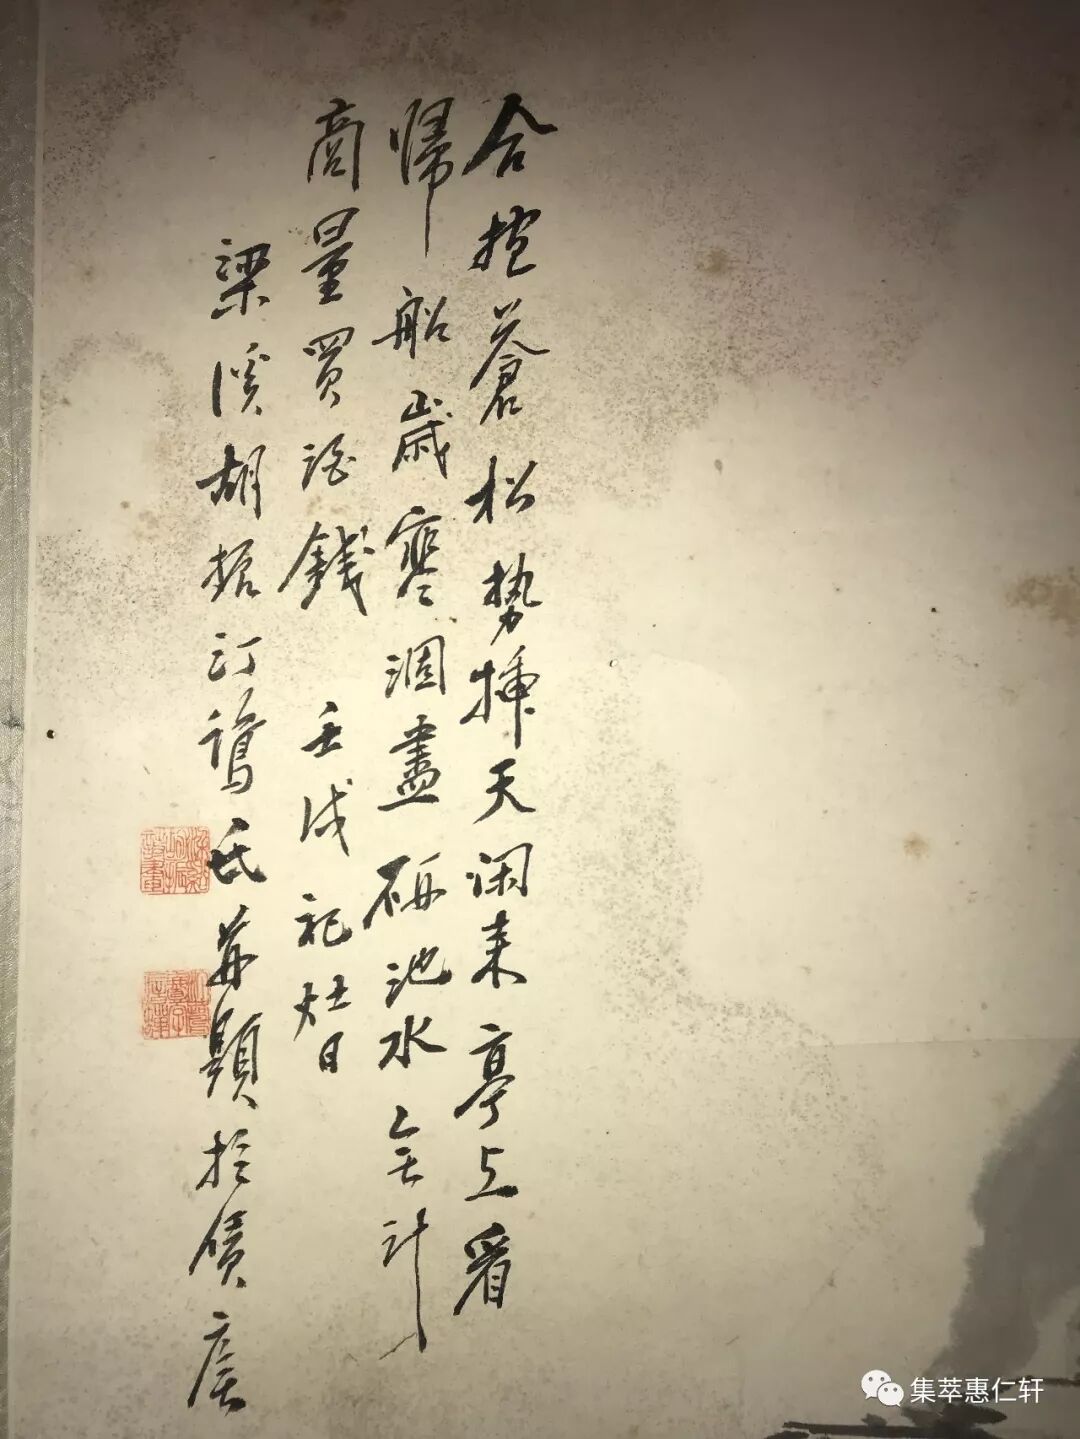 合抱蒼松勢插天閑来亭上看
歸船歲寒涸盡硯池水無計
商量買酒錢 壬戌祀灶日
梁溪胡振汀鷺氏并題於
集萃惠仁轩